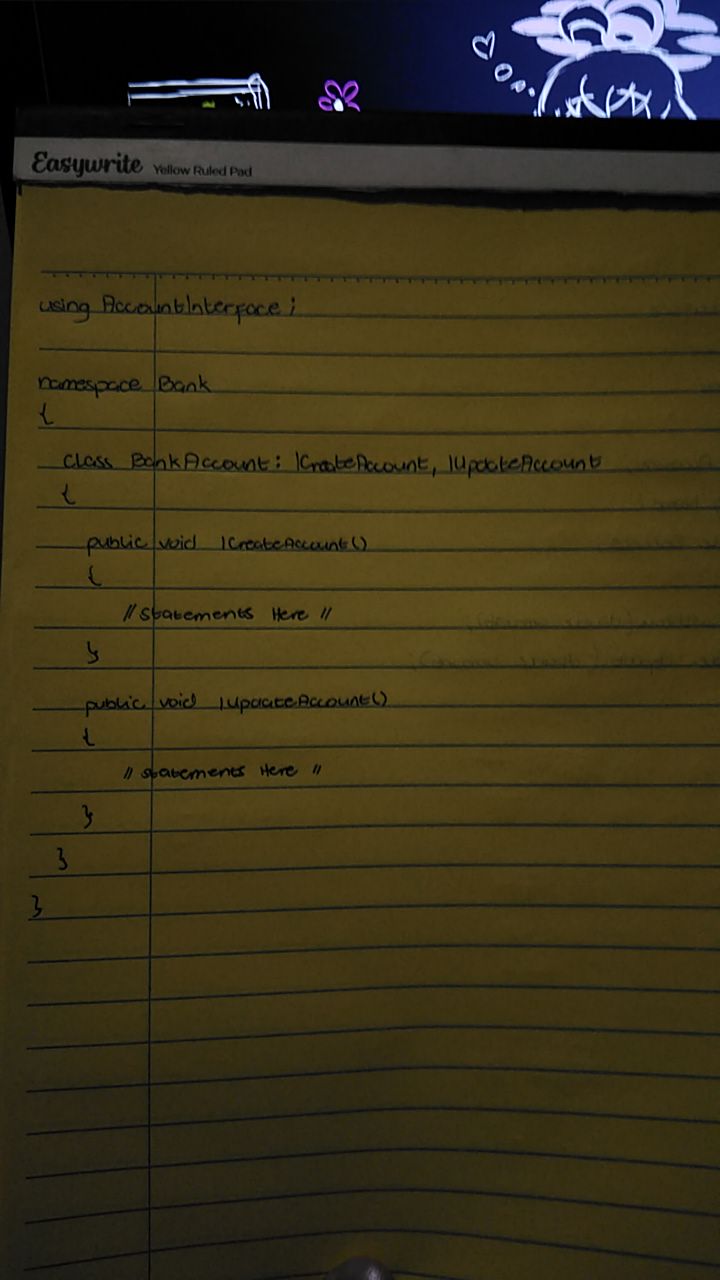 Easywrite Yellow Ruled Pad
using AccountInterface;
namespace Bank
{
class BankAccount: ICreateAccount, IUpdateAccount
{
public void ICreateAccount()
{
// Statements Here //
}
public void IUpdateAccount()
{
// Statements Here //
}
}
}